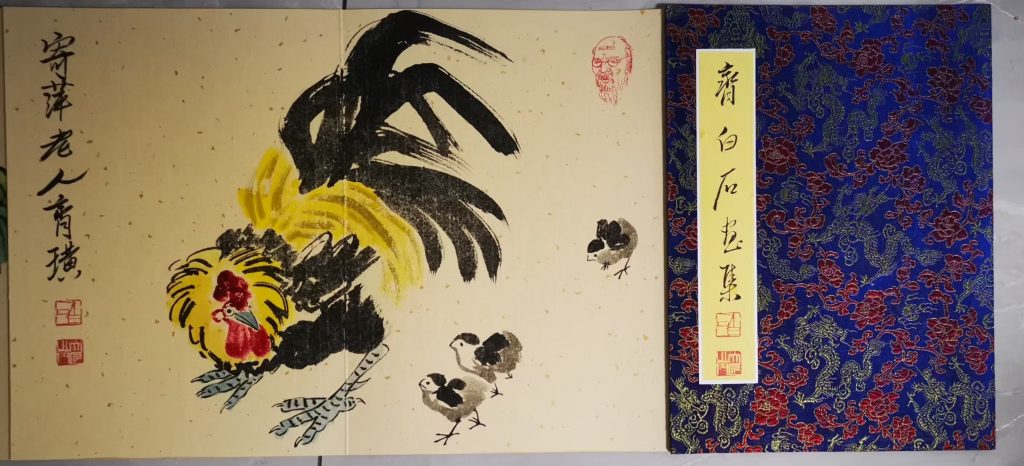 寄萍老人齊璜
齊白石画集